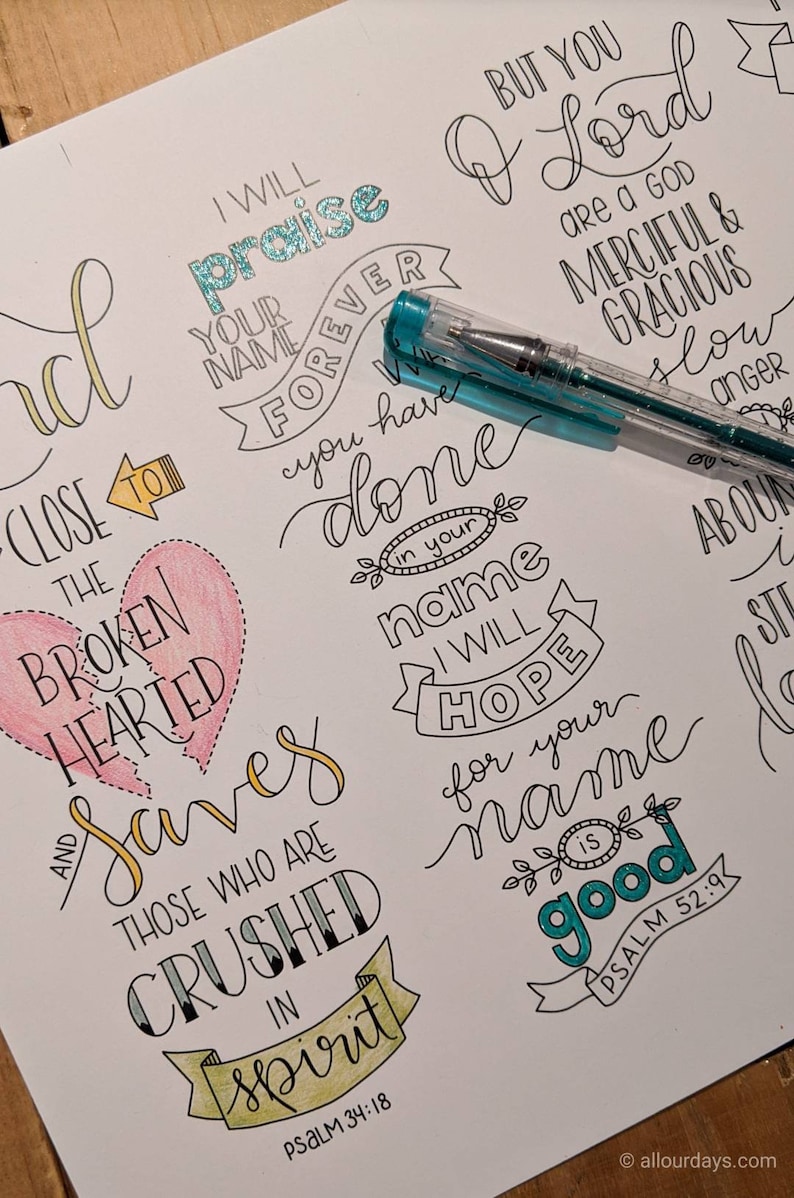 CLOSE TO
THE
BROKEN
HEARTED
AND saves
THOSE WHO ARE
CRUSHED
IN
spirit
PSALM 34:18
I WILL
praise
YOUR
NAME
FOREVER
you have
done
in your
name
I WILL
HOPE
for your
name
is
good
PSALM 52:9
BUT YOU
O Lord
are a GOD
MERCIFUL &
GRACIOUS
slow
anger
© allourdays.com